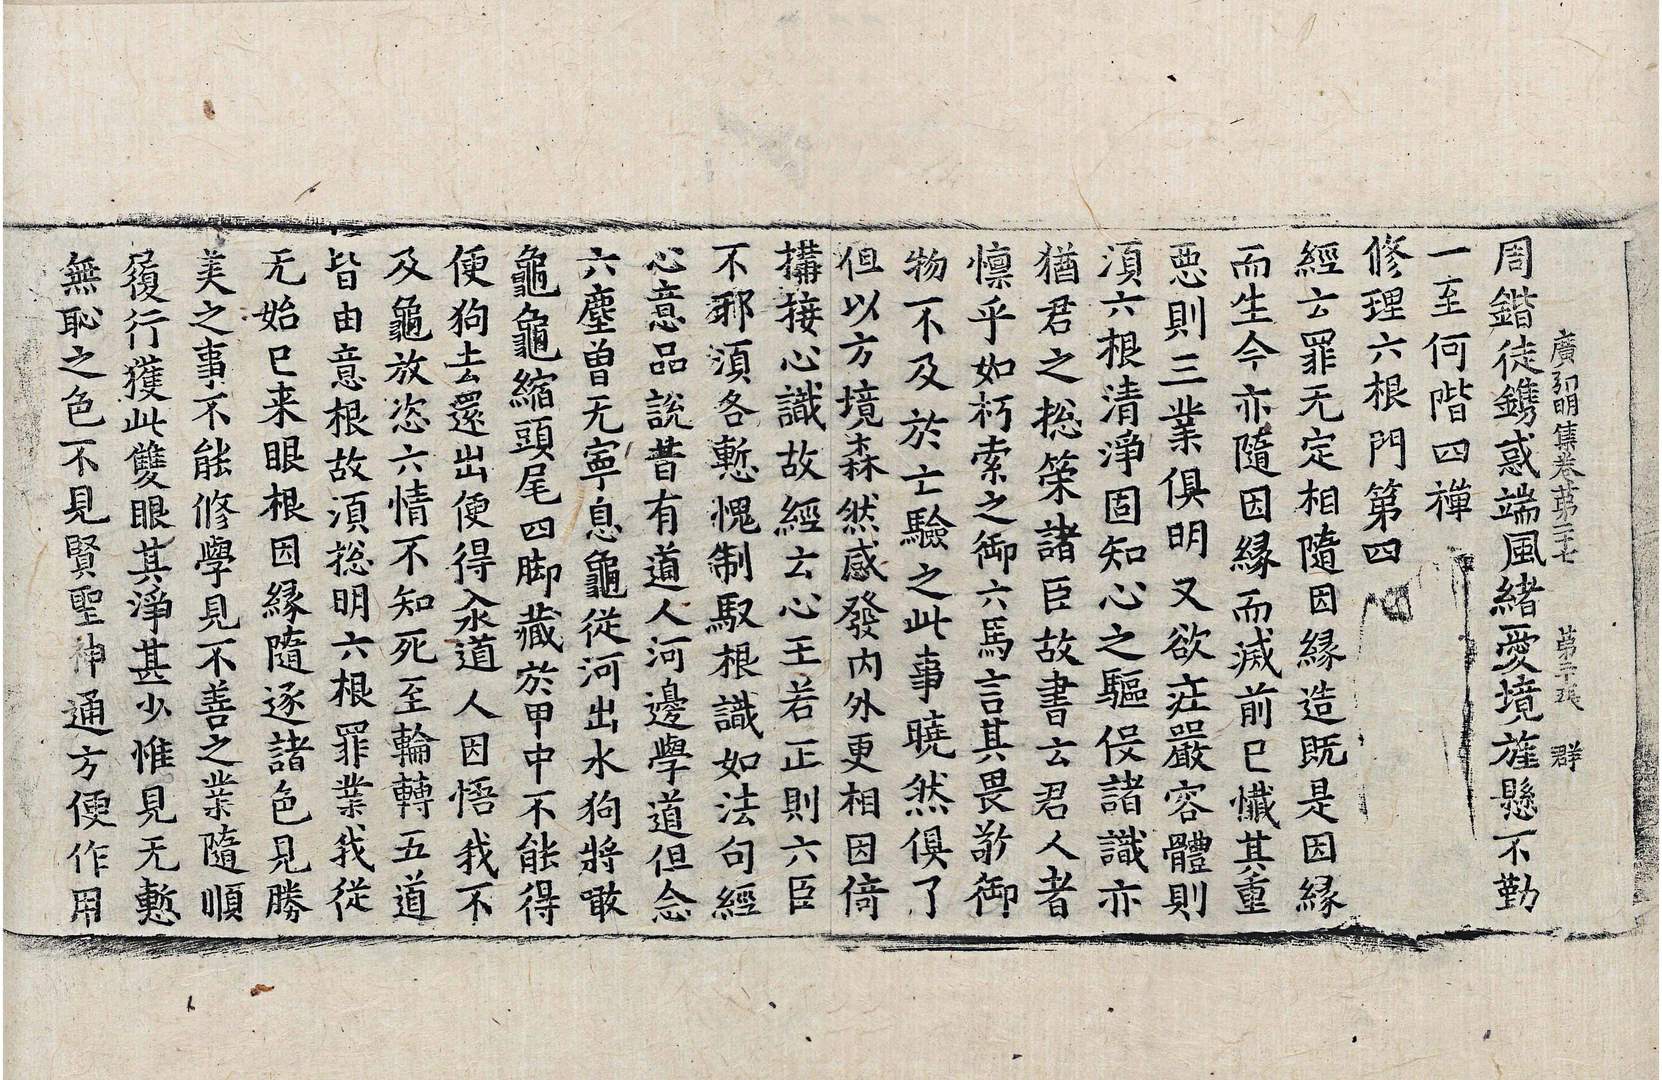 廣弘明集卷第二十七 第二十張 群
周鍇徒鐫惑端風緒愛境旌懸不勤
一至何階四禪
修理六根門第四
經云罪无定相隨因緣造既是因緣
而生今亦隨因緣而滅前已懺其重
惡則三業俱明又欲莊嚴容體則
湏六根清淨固知心之驅伇諸識亦
猶君之捴策諸臣故書云君人者
懍乎如朽索之御六馬言其畏敬御
物不及於士驗之此事曉然俱了
但以方境森然感發内外更相因倚
搆接心識故經云心王若正則六臣
不邪湏各慙愧制馭根識如法句經
心意品說昔有道人河邊學道但念
六塵曾无寧息龜從河出水狗將噉
龜龜縮頭尾四脚藏於甲中不能得
便狗去還出便得入水道人因悟我不
及龜放恣六情不知死至輪轉五道
皆由意根故湏捴明六根罪業我從
无始已来眼根因緣隨逐諸色見勝
美之事不能修學見不善之業隨順
履行獲此雙眼其淨甚少惟見无慙
無恥之色不見賢聖神通方便作用